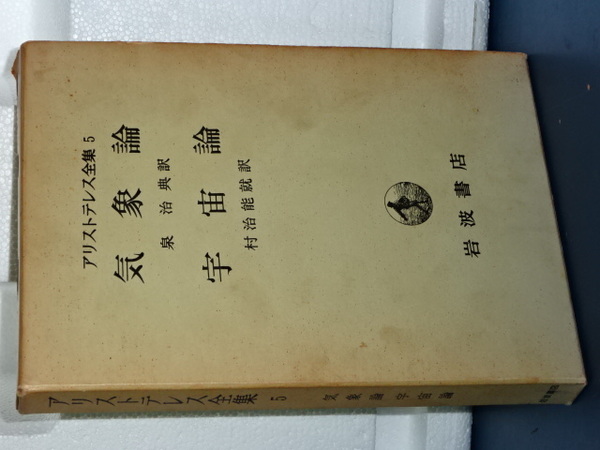 アリストテレス全集 5
気象論
泉 治典 訳
宇宙論
村治能就 訳
岩波書店
アリストテレス全集 5
気象論 宇宙論
岩波書店